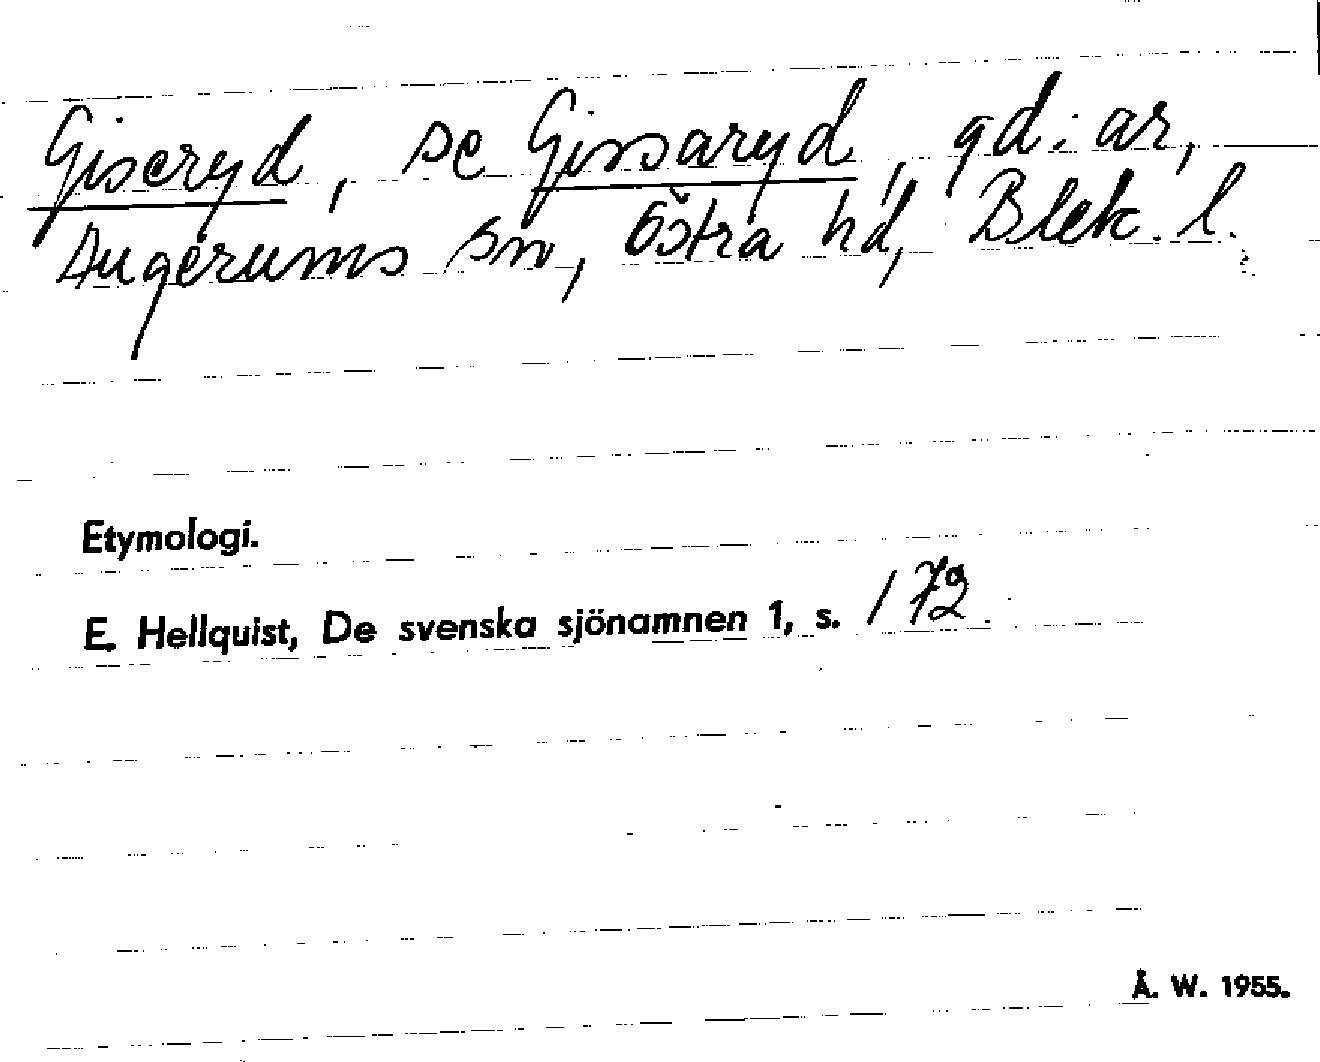 Giseryd, se Gissaryd, gd:ar,
Augerums sn, Östra hd, Blek. l.
Etymologi.
E. Hellquist, De svenska sjönamnen 1, s. 172.
Å. W. 1955.